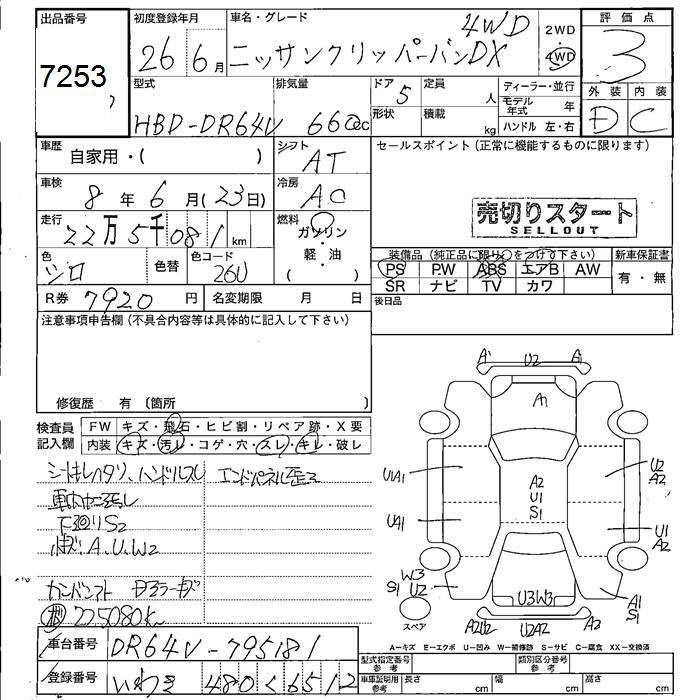 出品番号
7253
初度登録年月
26年6月
車名・グレード
4WD
ニッサンクリッパーバンDX
2WD
4WD
評価点
3
外装 内装
D C
型式
HBD-DR64V
排気量
660cc
ドア
5
形状
定員
人
積載
kg
ディーラー・並行
モデル年式 年
ハンドル 左・右
車歴
自家用・( )
シフト
AT
セールスポイント(正常に機能するものに限ります)
車検
8年6月(23日)
冷房
AC
売切りスタート
SELLOUT
走行
22万5千081km
燃料
ガソリン・軽油
( )
色
シロ
色替
色コード
26U
装備品(純正品に限り○をつけて下さい)
新車保証書
PS P.W ABS エアB AW
SR ナビ TV カワ
有・無
R券 7920円
名変期限 月 日
後日品
注意事項申告欄(不具合内容等は具体的に記入して下さい)
修復歴 有(箇所 )
検査員記入欄
FW キズ・飛石・ヒビ割・リペア跡・X要
内装 キズ・汚レ・コゲ・穴・スレ・キレ・破レ
エンドパネル歪ミ
下廻りS2
A.U.W2
225080K
車台番号
DR64V-795181
登録番号
いわき 480 く 6512
A1 U2 A1
A1
U1A1
U2
A2
A2
U1
S1
UA1
U1
A2
W3
S1 U2
U3W3
A1
S1
スペア
A2U2 U2A2 A2
A-キズ E-エクボ U-凹み W-補修跡 S-サビ C-腐食 XX-交換済
型式指定番号 参考
類別区分番号 参考
車庫証明用 参考
長さ cm
幅 cm
高さ cm